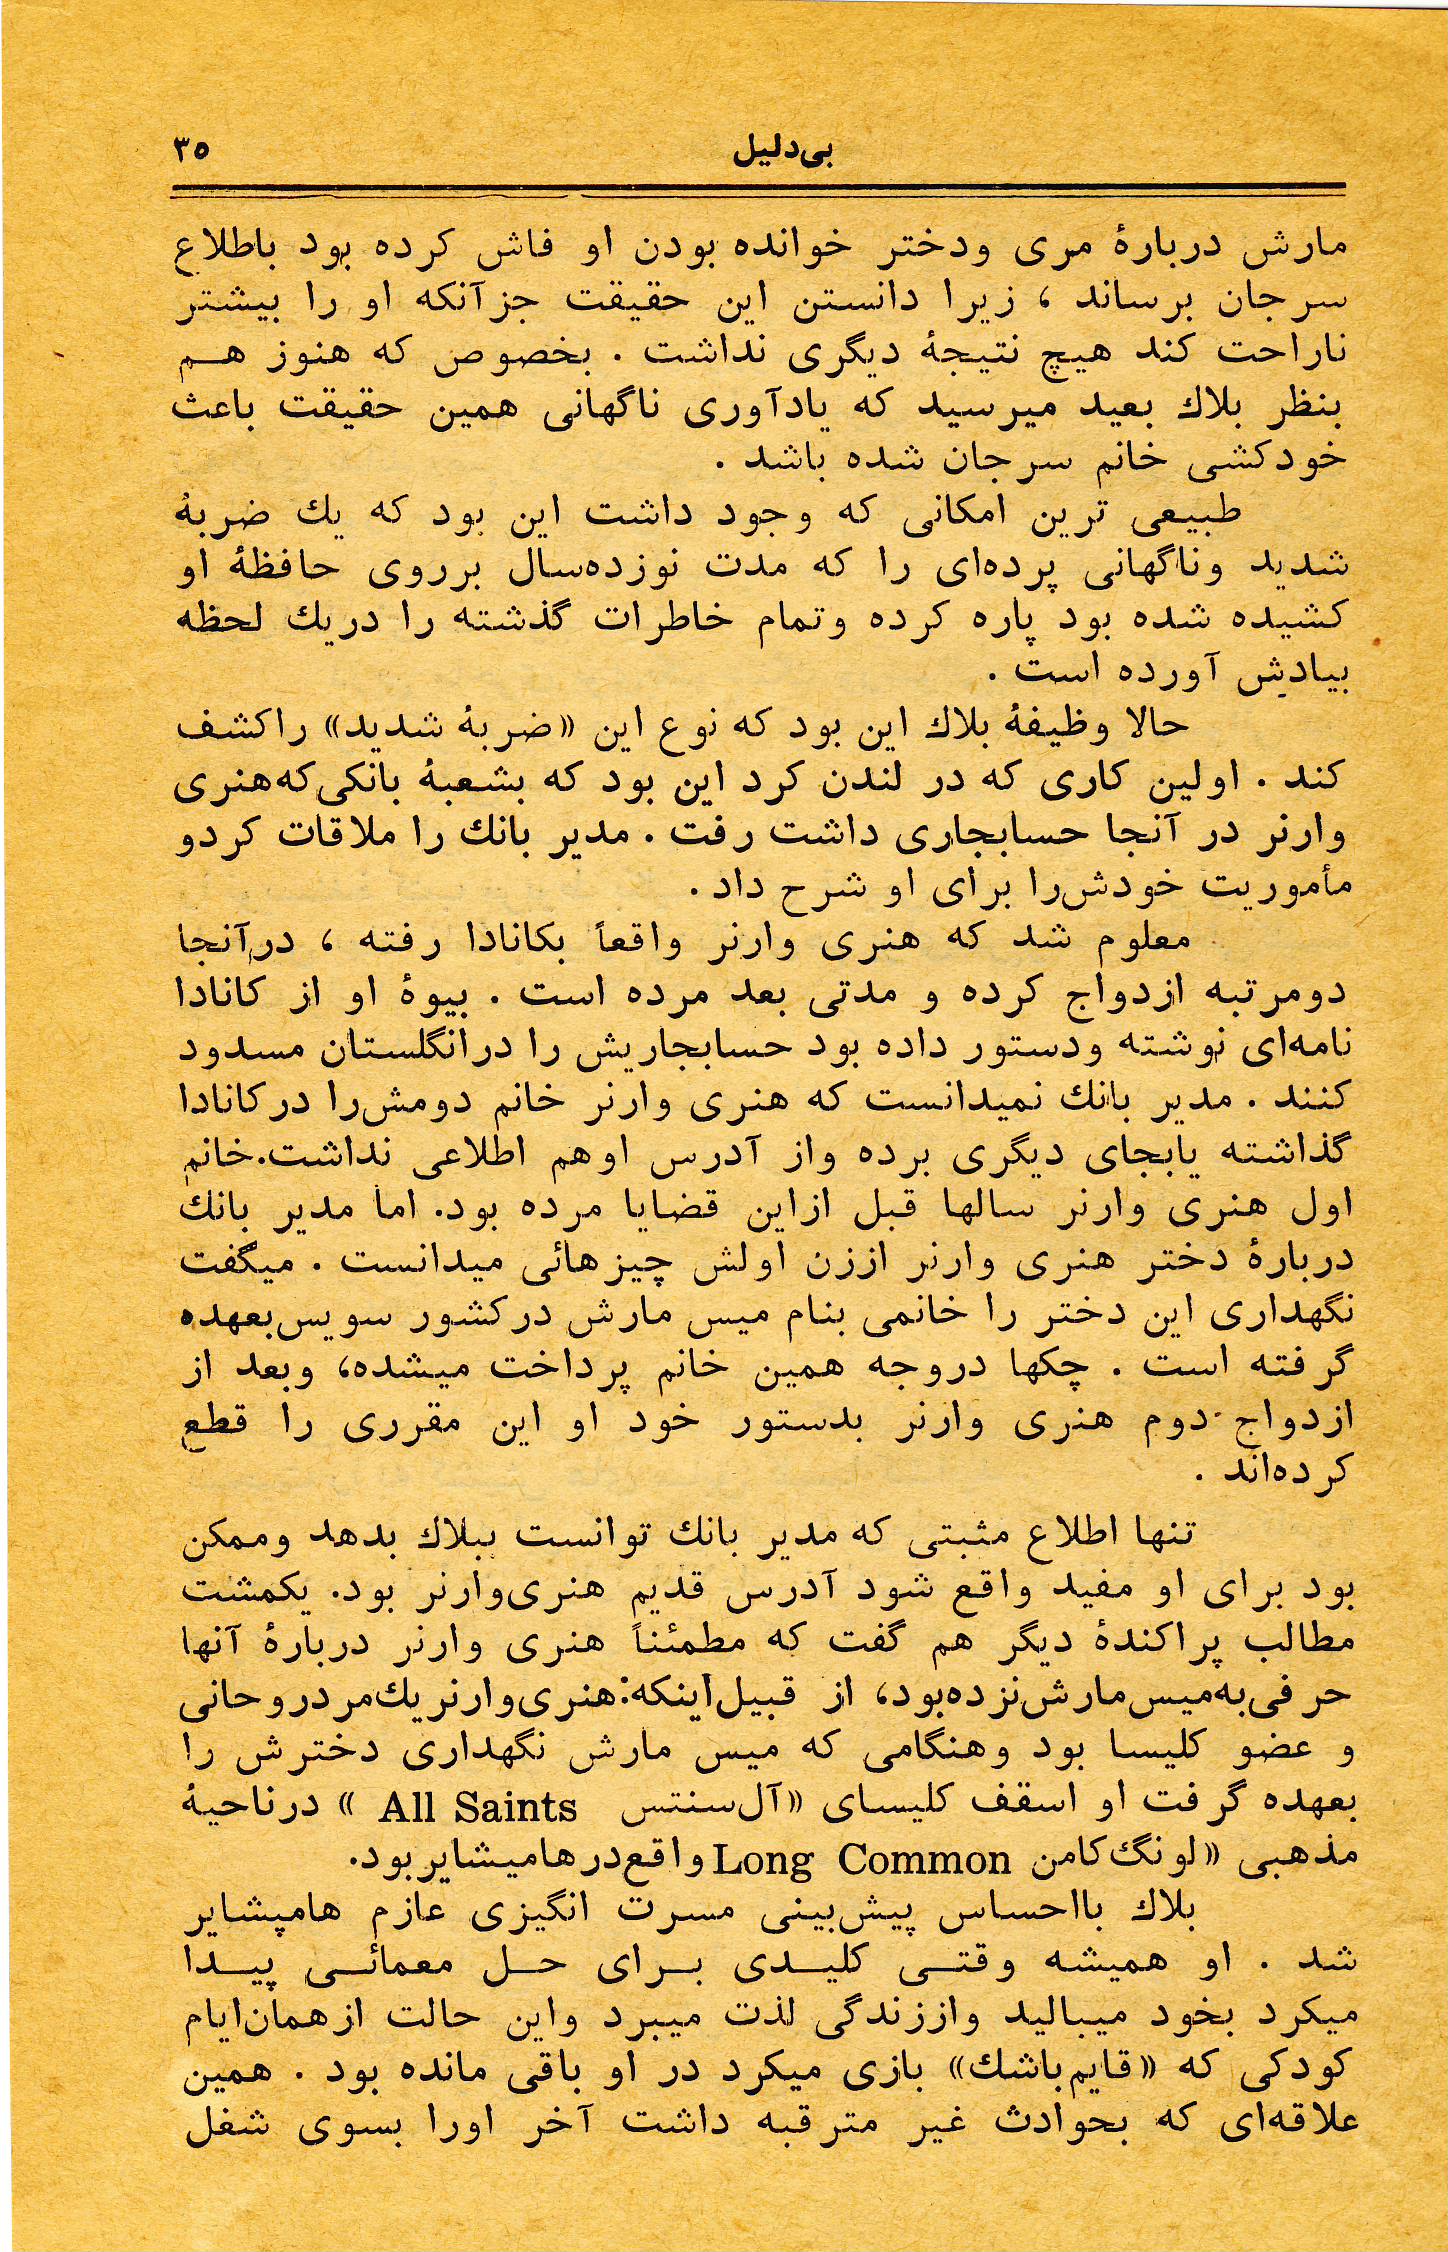 بی‌دلیل ۳۵
مارش دربارهٔ مری ودختر خوانده بودن او فاش کرده بود باطلاع
سرجان برساند ، زیرا دانستن این حقیقت جزآنکه او را بیشتر
ناراحت کند هیچ نتیجهٔ دیگری نداشت . بخصوص که هنوز هم
بنظر بلاك بعید میرسید که یادآوری ناگهانی همین حقیقت باعث
خودکشی خانم سرجان شده باشد .
طبیعی ترین امکانی که وجود داشت این بود که یك ضربهٔ
شدید وناگهانی پرده‌ای را که مدت نوزده‌سال برروی حافظهٔ او
کشیده شده بود پاره کرده وتمام خاطرات گذشته را دریك لحظه
بیادش آورده است .
حالا وظیفهٔ بلاك این بود که نوع این «ضربهٔ شدید» راکشف
کند . اولین کاری که در لندن کرد این بود که بشعبهٔ بانکی‌که‌هنری
وارنر در آنجا حسابجاری داشت رفت . مدیر بانك را ملاقات کردو
مأموریت خودش‌را برای او شرح داد .
معلوم شد که هنری وارنر واقعاً بکانادا رفته ، درآنجا
دومرتبه ازدواج کرده و مدتی بعد مرده است . بیوهٔ او از کانادا
نامه‌ای نوشته ودستور داده بود حسابجاریش را درانگلستان مسدود
کنند . مدیر بانك نمیدانست که هنری وارنر خانم دومش‌را درکانادا
گذاشته یابجای دیگری برده واز آدرس اوهم اطلاعی نداشت.خانم
اول هنری وارنر سالها قبل ازاین قضایا مرده بود. اما مدیر بانك
دربارهٔ دختر هنری وارنر اززن اولش چیزهائی میدانست . میگفت
نگهداری این دختر را خانمی بنام میس مارش درکشور سویس‌بعهده
گرفته است . چکها دروجه همین خانم پرداخت میشده، وبعد از
ازدواج دوم هنری وارنر بدستور خود او این مقرری را قطع
کرده‌اند .
تنها اطلاع مثبتی که مدیر بانك توانست ببلاك بدهد وممکن
بود برای او مفید واقع شود آدرس قدیم هنری‌وارنر بود. یکمشت
مطالب پراکندهٔ دیگر هم گفت که مطمئناً هنری وارنر دربارهٔ آنها
حرفی‌به‌میس‌مارش‌نزده‌بود، از قبیل‌اینکه:هنری‌وارنریك‌مردروحانی
و عضو کلیسا بود وهنگامی که میس مارش نگهداری دخترش را
بعهده گرفت او اسقف کلیسای «آل‌سنتس All Saints » درناحیهٔ
مذهبی «لونگ‌کامن Long Common واقع‌درهامیشایربود.
بلاك بااحساس پیش‌بینی مسرت انگیزی عازم هامپشایر
شد . او همیشه وقتی کلیدی برای حل معمائی پیدا
میکرد بخود میبالید واززندگی لذت میبرد واین حالت ازهمان‌ایام
کودکی که «قایم‌باشك» بازی میکرد در او باقی مانده بود . همین
علاقه‌ای که بحوادث غیر مترقبه داشت آخر اورا بسوی شغل